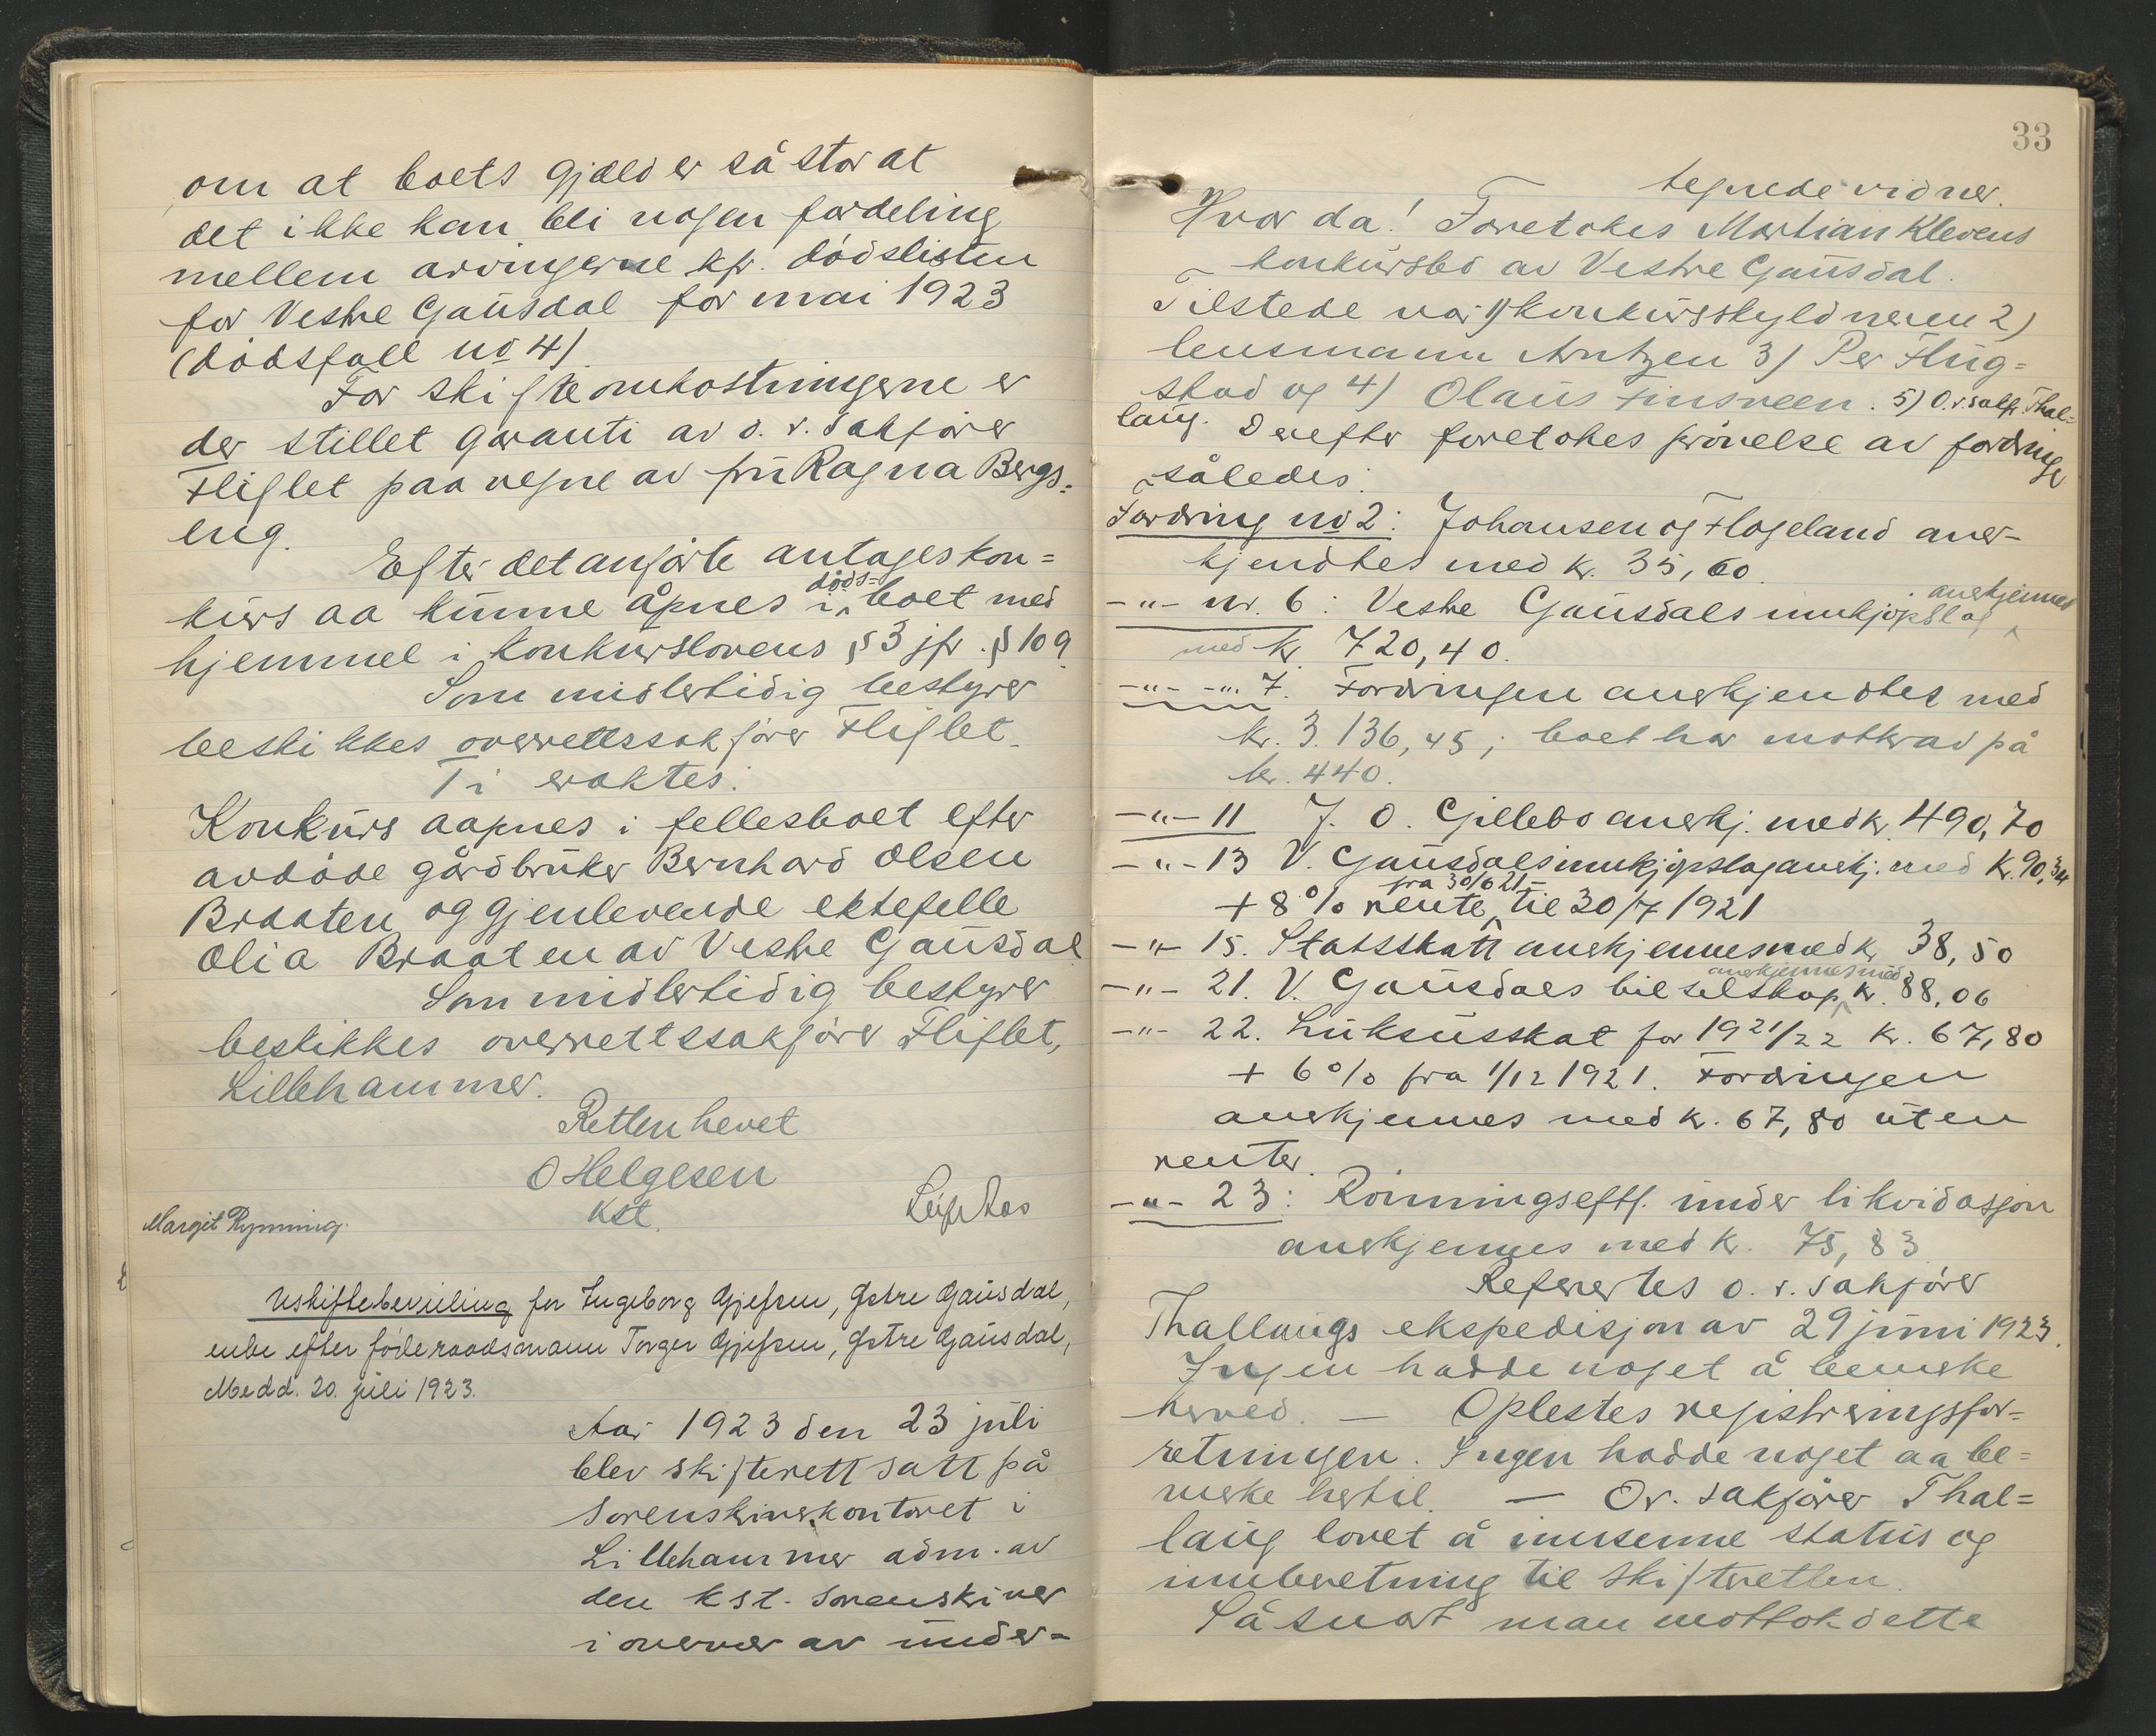 om at boets gjæld er så stor at
det ikke kan bli nogen fordeling
mellem arvingerne kfr. dødslisten
for Vestre Gausdal for mai 1923
(dødsfall no 4)
For skifteomkostningerne er
der stillet garanti av o. r. sakfører
Fliflet paa vegne av fru Ragna Bergs=
eng.
Efter det anførte antages kon=
kurs aa kunne åpnes i døds=boet med
hjemmel i konkurslovens § 3 jfr. § 109
Som midlertidig bestyrer
beskikkes overrettssakfører Fliflet.
Ti eraktes:
Konkurs aapnes i fellesboet efter
avdøde gårdbruker Bernhard Olsen
Braaten og gjenlevende ektefelle
Olia Braaten av Vestre Gausdal
Som midlertidig bestyrer
beskikkes overrettssakfører Fliflet,
Lillehammer.
Retten hevet
O Helgesen
kst.
Leif Aas
Margit Rynning.
Uskiftebevilling for Ingeborg Gjefsen, Østre Gausdal,
enke efter føderaadsmann Torger Gjefsen, Østre Gausdal,
Medd. 20. juli 1923.
Aar 1923 den 23 juli
blev skifterett satt på
sorenskriverkontoret i
Lillehammer adm. av
den kst. sorenskriver
i overvær av under=
33
tegnede vidner.
Hvor da! Foretokes Martian Klevens
konkursbo av Vestre Gausdal.
Tilstede var 1) konkursskyldneren 2)
lensmann Arntzen 3) Per Flug=
stad og 4) Olaus Finsveen. 5) O.r.sakf. Thal=
laug. Derefter foretokes prøvelse av fordringer
således:
Fordring no 2: Johansen og Flogeland aner-
kjendtes med kr. 35,60.
-"- nr. 6: Vestre Gausdals innkjøpslag anerkjennes
med kr. 720,40.
-"- -"- 7. Fordringen anerkjendtes med
kr. 3.136,45; boet har motkrav på
kr. 440.
-"- 11 J. O. Gillebo anerkj. med kr. 490,70
-"- 13 V. Gausdals innkjøpslag anerkj. med kr. 90,34
+ 8 % rente fra 30/6 21 til 30/7 1921
-"- 15. Statsskatt anerkjennes med kr. 38,50
-"- 21. V. Gausdals bilselskap anerkjennes med kr. 88,06
-"- 22. Luksusskat for 1921/22 kr. 67,80
+ 6 % fra 1/12 1921. Fordringen
anerkjennes med kr. 67,80 uten
renter.
-"- 23: Rønningseftf. under likvidasjon
anerkjennes med kr. 75,83
Refertes o. r. sakfører
Thallaugs ekspedisjon av 29 juni 1923.
Ingen hadde noget å bemerke
herved. — Oplestes registreringsfor=
retningen. Ingen hadde noget aa be=
merke hertil. — Or. sakfører Thal=
laug lovet å innsenne status og
innberetning til skifteretten.
Så snart man mottok dette